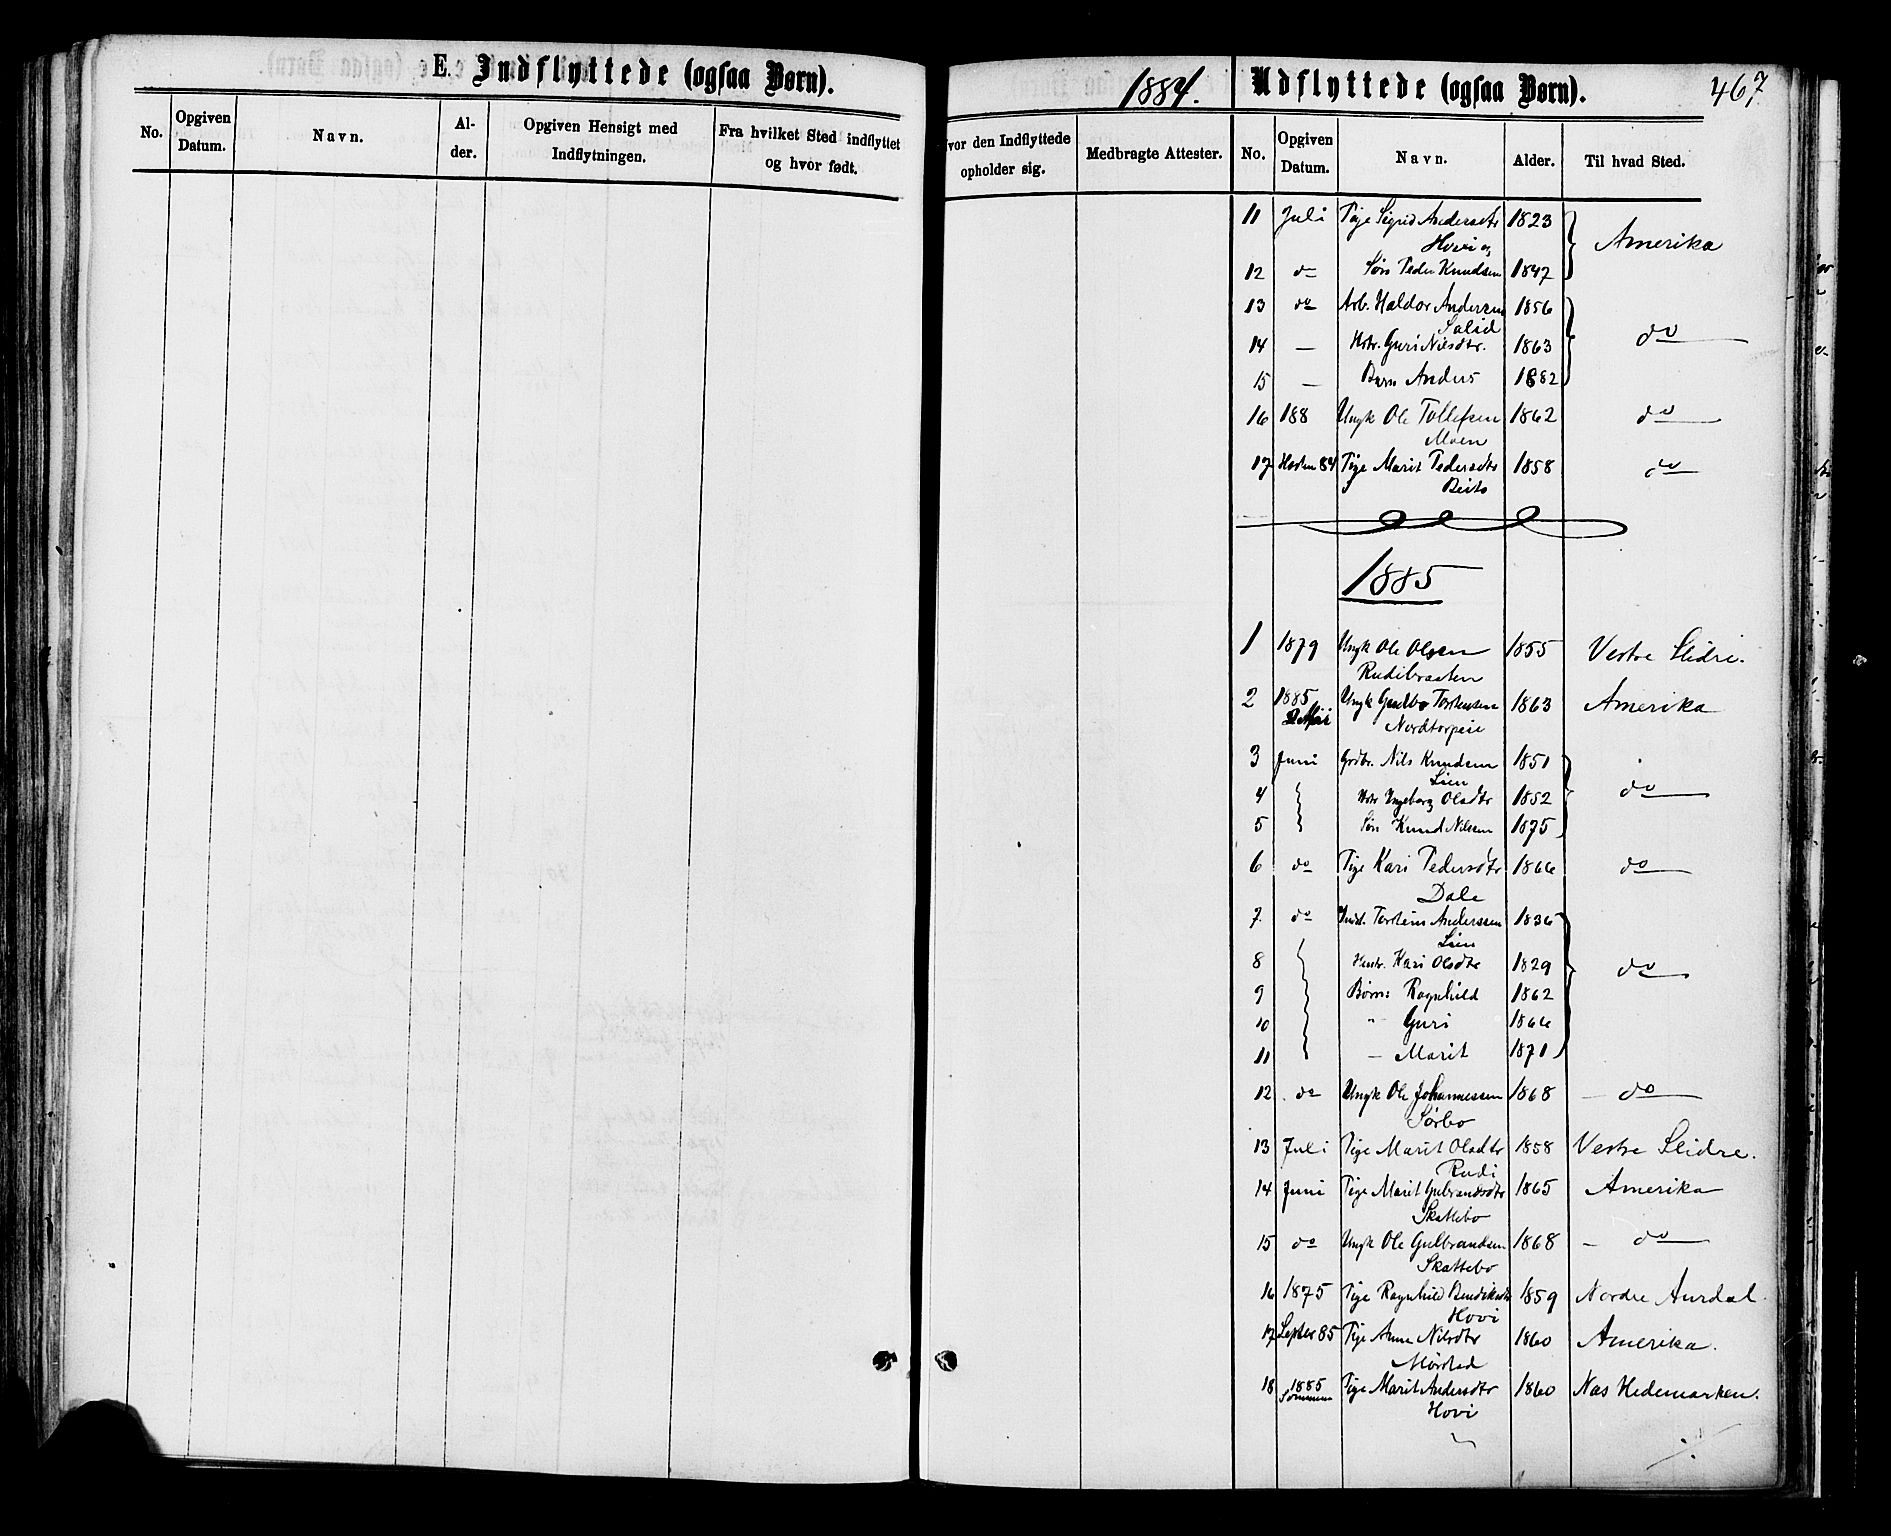 E. Indflyttede (ogsaa Børn).
1884.
Udflyttede (ogsaa Børn).
467
No.
Opgiven Datum.
Navn.
Al-
der.
Opgiven Hensigt med
Indflytningen.
Fra hvilket Sted indflyttet
og hvor født.
vor den Indflyttede
opholder sig.
Medbragte Attester.
No.
Opgiven
Datum.
Navn.
Alder.
Til hvad Sted.
11 Juli Pige Sigrid Andersdtr 1823 Amerika
Hovi og
12 do Søn Peder Knudsen 1847
13 do Arb. Haldor Andersen 1856 do
14 — Hstr. Guri Nilsdtr. 1863
15 — Barn Anders 1882
16 188 Ungk Ole Tollefsen 1862 do
Moen
17 Høsten 84 Pige Marit Pedersdtr 1858 do
Beito
1885
1 1879 Ungk Ole Olsen 1855 Vestre Slidre.
Rudibraaten
2 1885 Ungk Gulbr Torstensen 1863 Amerika
Nordtorpeie
3 Juni Grdbr. Nils Knudsen 1851 do
Lien
4 Hstr Ingeborg Olsdtr 1852
5 Søn Knud Nilsen 1875
6 do Pige Kari Pedersdtr 1866 do
Dale
7. do Indst. Torstein Anderssen 1836 do
Lien
8 Hustr. Kari Olsdtr 1829
9 Børn: Ragnhild 1862
10 " Guri 1866
11 — Marit 1871
12 do Ungk Ole Johannessen 1868 — do
Sørbo
13 Juli Pige Marit Olsdtr 1858 Vestre Slidre.
Rudi
14 Juni Pige Marit Gulbrandsdtr 1865 Amerika
Skattebo
15 do Ungk Ole Gulbrandsen 1868 — do
Skattebo
16 1875 Pige Ragnhild Bendiksdtr 1859 Nordre Aurdal.
Hovi
17 Septbr 85 Pige Anne Nilsdtr 1860 Amerika.
Mørstad
18 1885 Pige Marit Andersdtr 1860 Nas Hedemarken.
Sommeren
Hovi